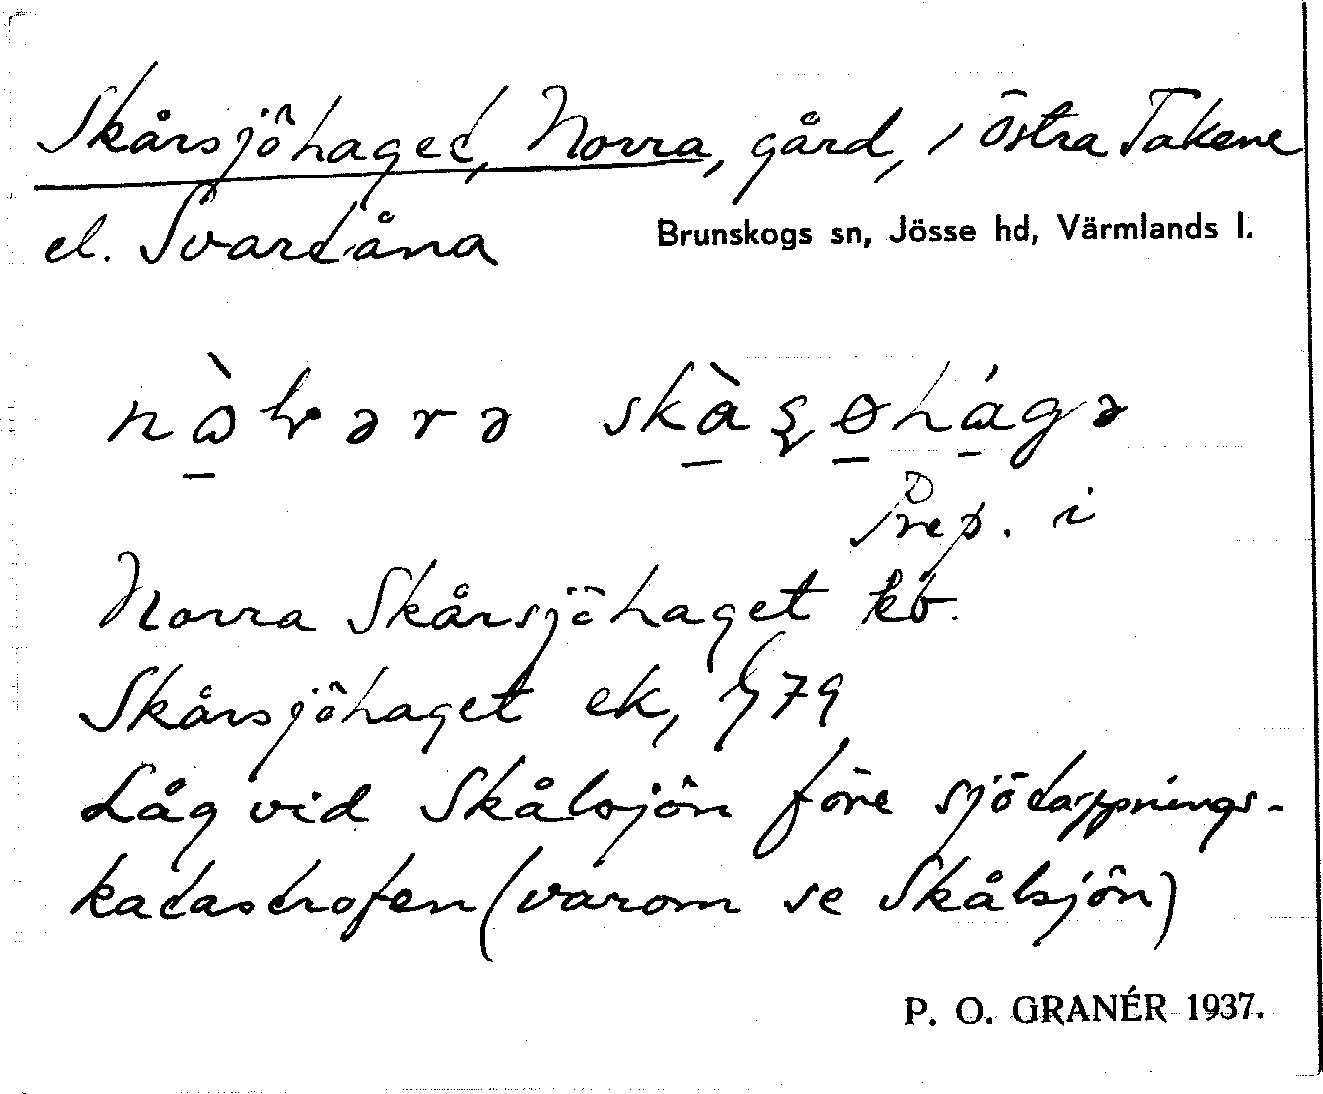 Skårsjöhaget, Norra, gård, i Östra Takene
el. Svartåna Brunskogs sn, Jösse hd, Värmlands l.
Prep. i
Norra Skårsjöhaget kb.
Skårsjöhaget ek, G79
Låg vid Skålsjön före sjötappnings-
katastrofen (varom se Skålsjön)
P. O. GRANÉR 1937.